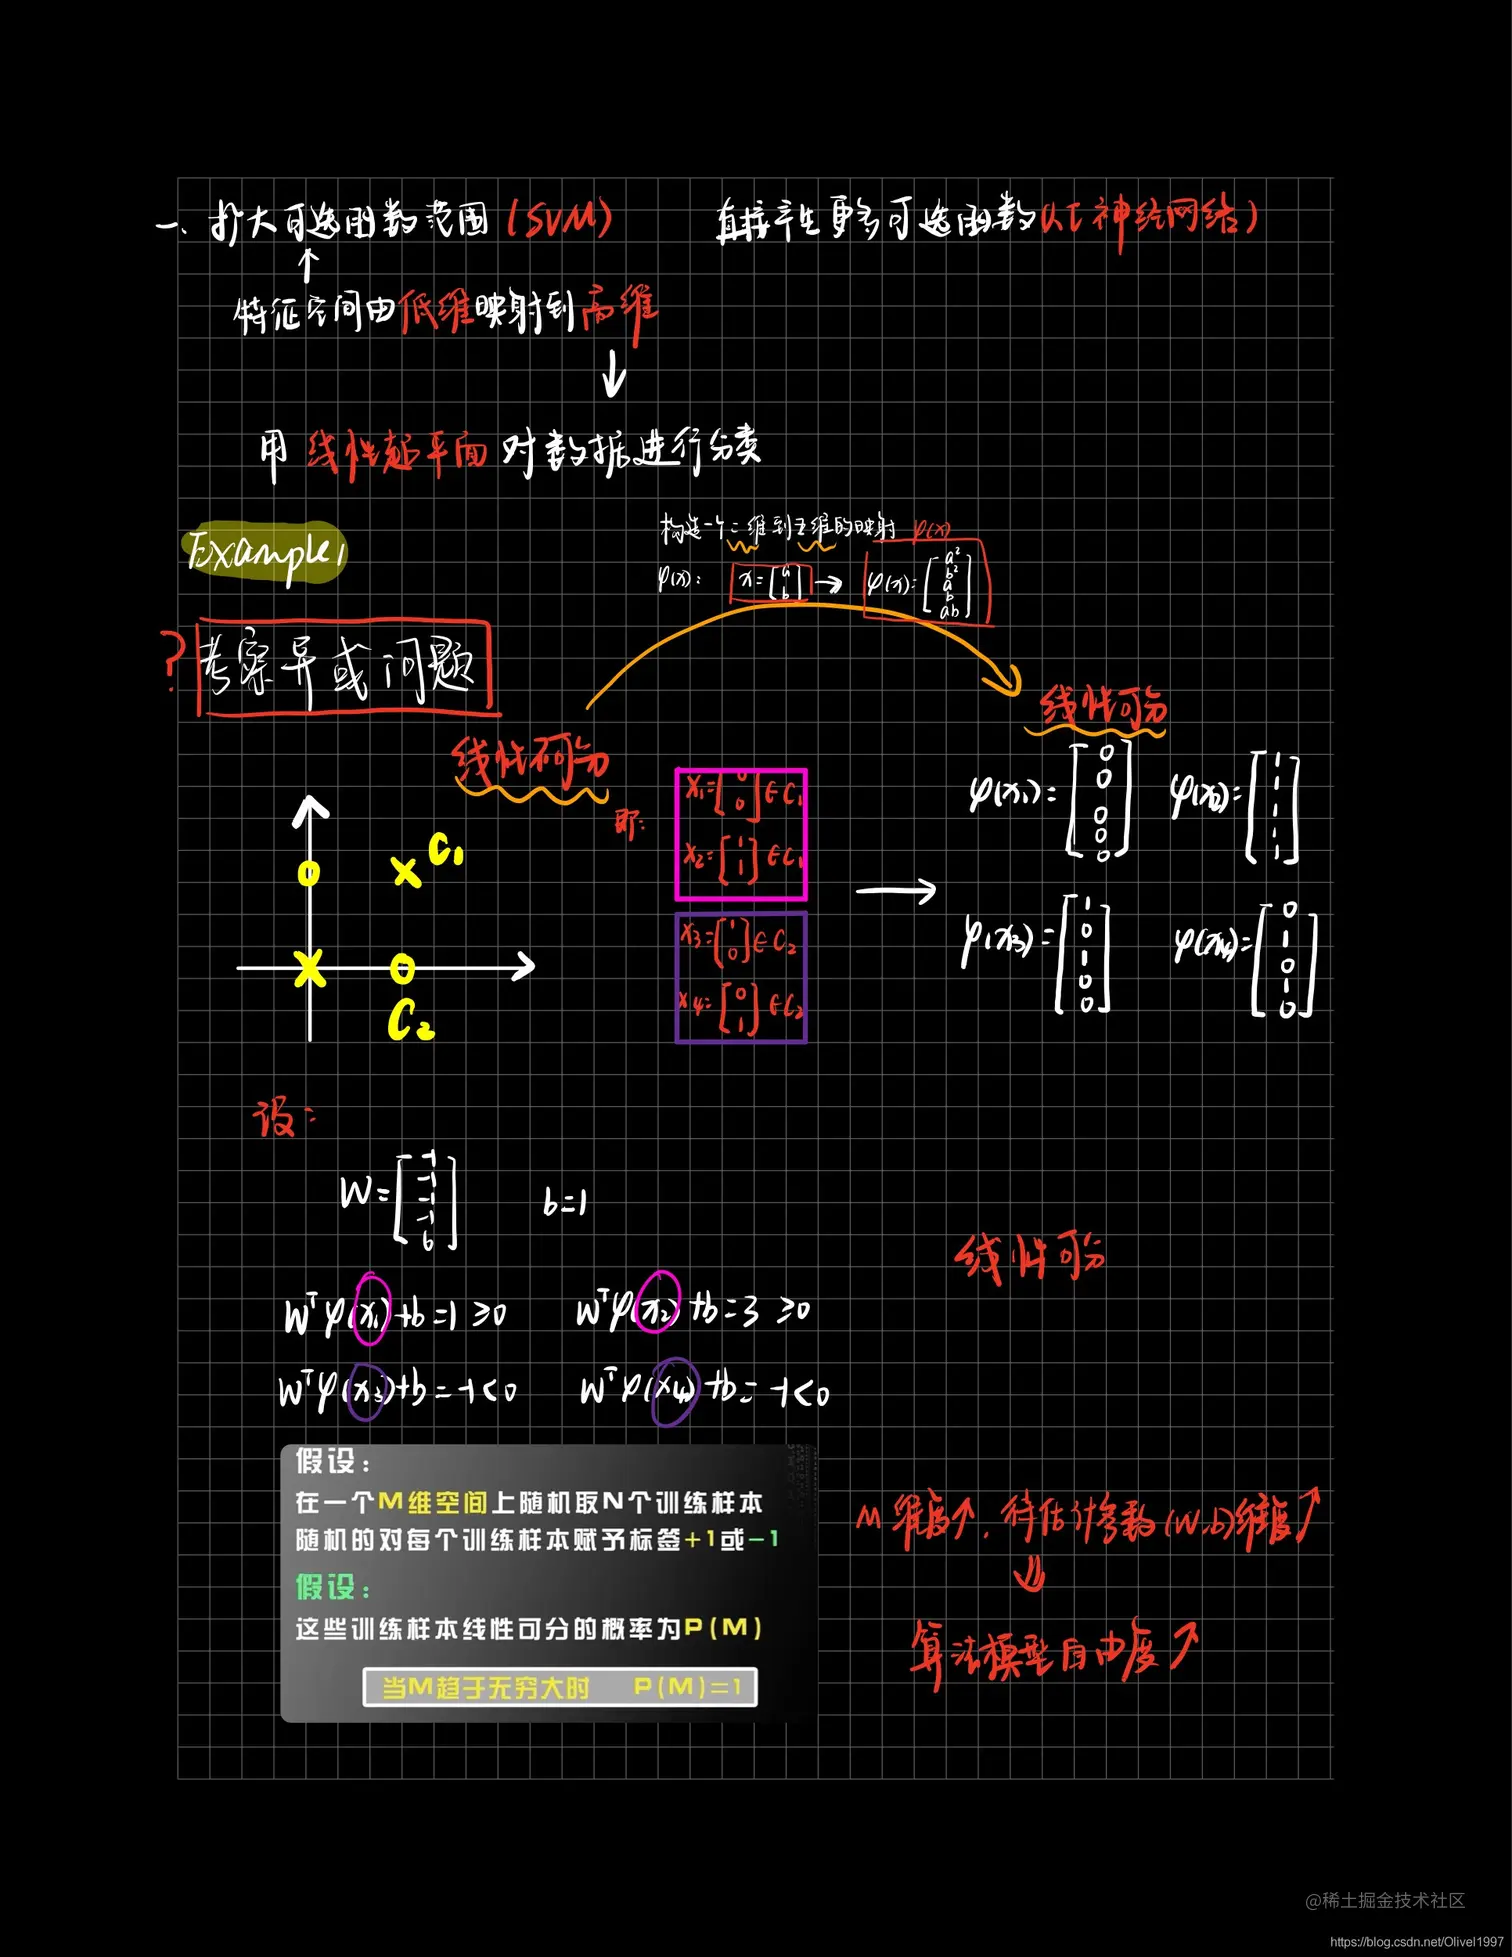 一、扩大可选函数范围(SVM) 直接产生更多可选函数(人工神经网络)
↑
特征空间由低维映射到高维
↓
用 线性超平面 对数据进行分类
Example1
构造一个二维到五维的映射 φ(x)
φ(x): x=[a b] → φ(x)=[a² b² a b ab]
? 考察异或问题
线性不可分
线性可分
即:
x₁=[0 0]∈C₁
x₂=[1 1]∈C₁
x₃=[1 0]∈C₂
x₄=[0 1]∈C₂
→
φ(x₁)=[0 0 0 0 0] φ(x₂)=[1 1 1 1 1]
φ(x₃)=[1 0 1 0 0] φ(x₄)=[0 1 0 1 0]
C₁
C₂
设:
W=[-1 -1 -1 -1 6] b=1
线性可分
Wᵀφ(x₁)+b=1≥0 Wᵀφ(x₂)+b=3≥0
Wᵀφ(x₃)+b=-1<0 Wᵀφ(x₄)+b=-1<0
假设:
在一个M维空间上随机取N个训练样本
随机的对每个训练样本赋予标签+1或-1
假设:
这些训练样本线性可分的概率为P(M)
当M趋于无穷大时 P(M)=1
M维度↗,待估计参数(W,b)维度↗
↓
算法模型自由度↗
@稀土掘金技术社区
https://blog.csdn.net/Olivel1997